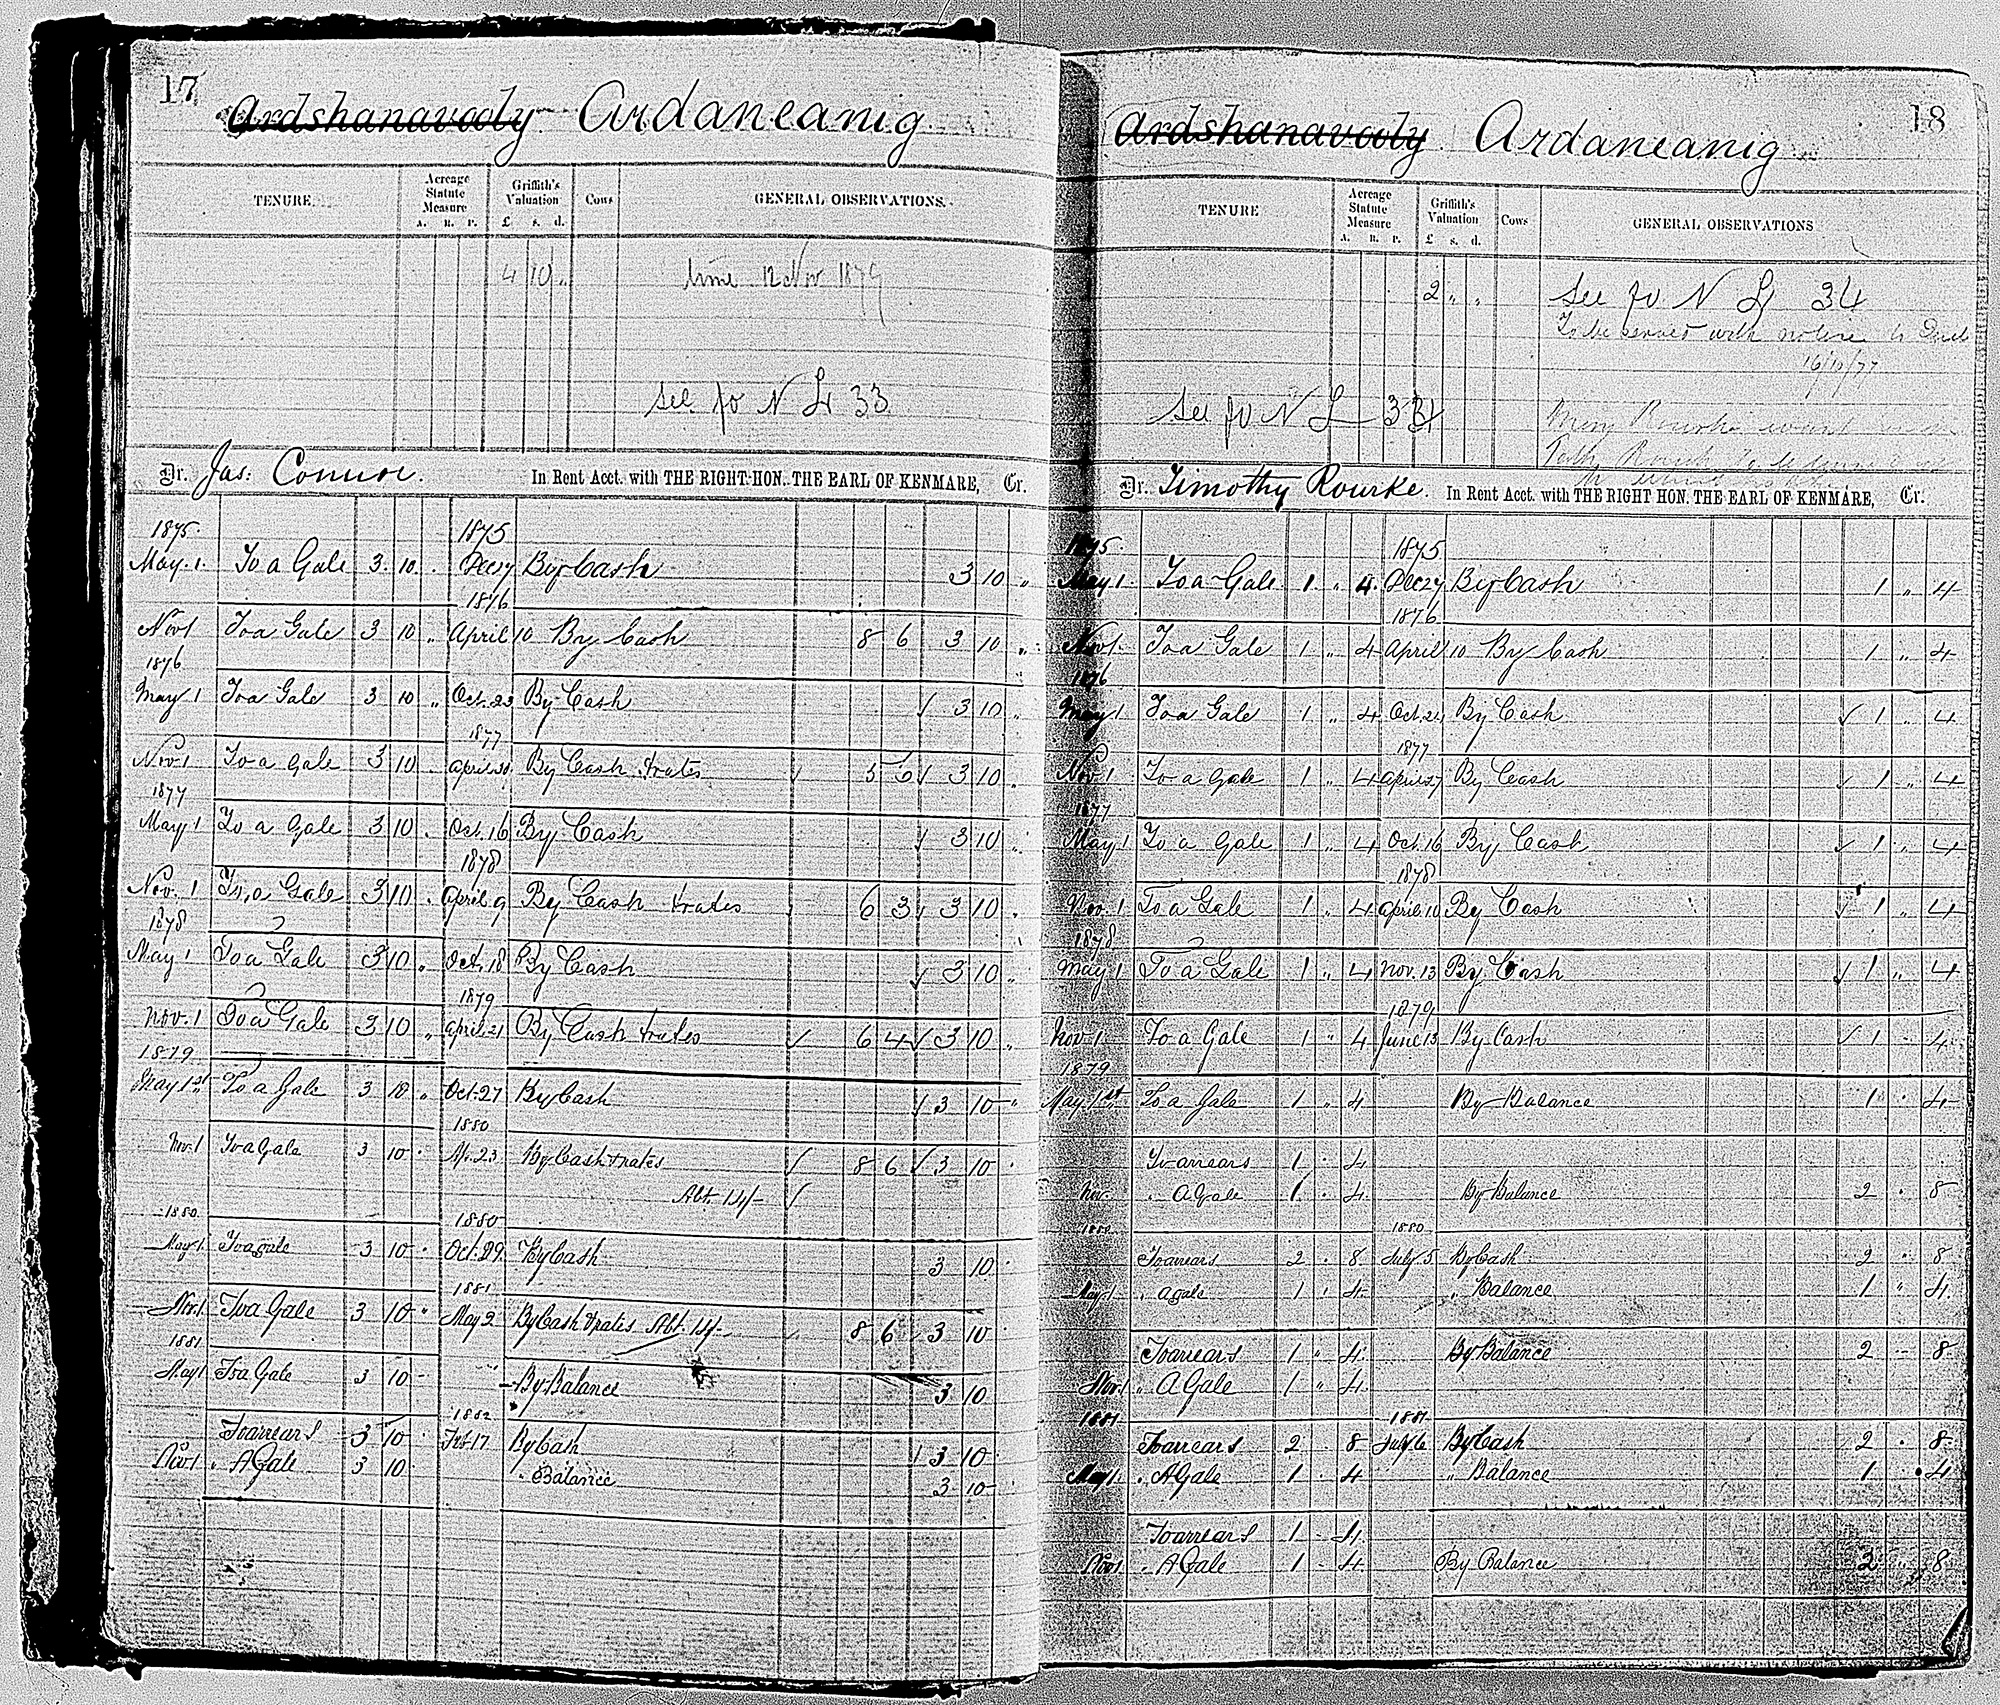 17
Ardshanavooly Ardaneanig
TENURE. Acreage Statute Measure A. R. P. Griffith's Valuation £ s. d. Cows GENERAL OBSERVATIONS.
4 10 „ time 12 Nov 1879
See fo N L 33
Dr. Jas: Connor. In Rent Acct. with THE RIGHT HON. THE EARL OF KENMARE, Cr.
1875 1875
May. 1 To a Gale 3 10 . Dec 27 By Cash 3 10 „
1876
Nov 1 To a Gale 3 10 „ April 10 By Cash 8 6 3 10 „
1876
May 1 To a Gale 3 10 „ Oct. 23 By Cash ✓ 3 10 „
1877
Nov. 1 To a Gale 3 10 . April 30 By Cash & rates ✓ 5 6 ✓ 3 10 .
1877
May 1 To a Gale 3 10 . Oct. 16 By Cash ✓ 3 10 „
1878
Nov. 1 To a Gale 3 10 . April 9 By Cash & rates 6 3 ✓ 3 10 .
1878
May 1 To a Gale 3 10 „ Oct. 18 By Cash ✓ 3 10 „
1879
Nov. 1 To a Gale 3 10 „ April 21 By Cash & rates ✓ 6 4 ✓ 3 10 „
1879
May 1st To a Gale 3 10 „ Oct. 27 By Cash ✓ 3 10 „
1880
Nov. 1 To a Gale 3 10 . Ap. 23 By Cash & rates ✓ 8 6 ✓ 3 10 .
Abt. 14/- ✓
1880 1880
May 1 To a gale 3 10 . Oct. 29 By Cash 3 10 .
1881
Nov. 1 To a Gale 3 10 „ May 2 By Cash & rates Abt. 14/- 8 6 ✓ 3 10
1881
May 1 To a Gale 3 10 - „ By Balance 3 10
1882
To arrears 3 10 . Feb 17 By Cash ✓ 3 10 .
Nov 1 „ A Gale 3 10 „ Balance 3 10 .
18
Ardshanavooly Ardaneanig
TENURE Acreage Statute Measure A. R. P. Griffith's Valuation £ s. d. Cows GENERAL OBSERVATIONS
2 „ „ See fo N L 34
To be served with notice to Quit
16/10/77
See fo N L 34
Mary Rourke
Dr. Timothy Rourke. In Rent Acct. with THE RIGHT HON. THE EARL OF KENMARE, Cr.
1875. 1875
May 1 To a Gale 1 „ 4. Dec 27 By Cash 1 „ 4
1876
Nov 1. To a Gale 1 „ 4 April 10 By Cash 1 „ 4
1876
May 1 To a Gale 1 „ 4 Oct. 24 By Cash ✓ 1 „ 4
1877
Nov. 1 To a Gale 1 „ 4 April 27 By Cash ✓ 1 „ 4
1877
May 1 To a Gale 1 „ 4 Oct. 16 By Cash ✓ 1 „ 4
1878
Nov. 1 To a Gale 1 „ 4 April 10 By Cash ✓ 1 „ 4
1878
May 1 To a Gale 1 „ 4 Nov. 13 By Cash ✓ 1 „ 4
1879
Nov 1 To a Gale 1 „ 4 June 13 By Cash ✓ 1 . 4
1879
May 1st To a Gale 1 „ 4 By Balance 1 . 4
To arrears 1 . 4
Nov. „ A Gale 1 . 4 By Balance 2 . 8
1880 1880
To arrears 2 . 8 July 5 By Cash 2 . 8
May 1 „ A gale 1 . 4 „ Balance 1 „ 4
To arrears 1 „ 4 By Balance 2 - 8
Nov. 1 „ A Gale 1 „ 4
1881 1881
To arrears 2 . 8 July 6 By Cash 2 . 8
May 1. „ A Gale 1 . 4 „ Balance 1 . 4
To arrears 1 - 4
Nov 1 „ A Gale 1 - 4 By Balance 2 „ 8